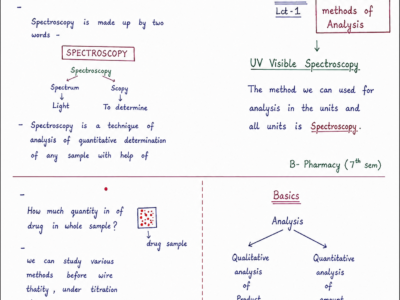 Spectroscopy is made up by two
words -
SPECTROSCOPY
Spectroscopy
Spectrum Scopy
Light To determine
- Spectroscopy is a technique of
analysis of quantitative determination
of any sample with help of
Lct-1
methods of
Analysis
UV Visible Spectroscopy
The method we can used for
analysis in the units and
all units is Spectroscopy.
B- Pharmacy (7th sem)
How much quantity in of
drug in whole sample?
drug sample
we can study various
methods before wire
thatity, under titration
Basics
Analysis
Qualitative Quantitative
analysis analysis
of of
Product amount